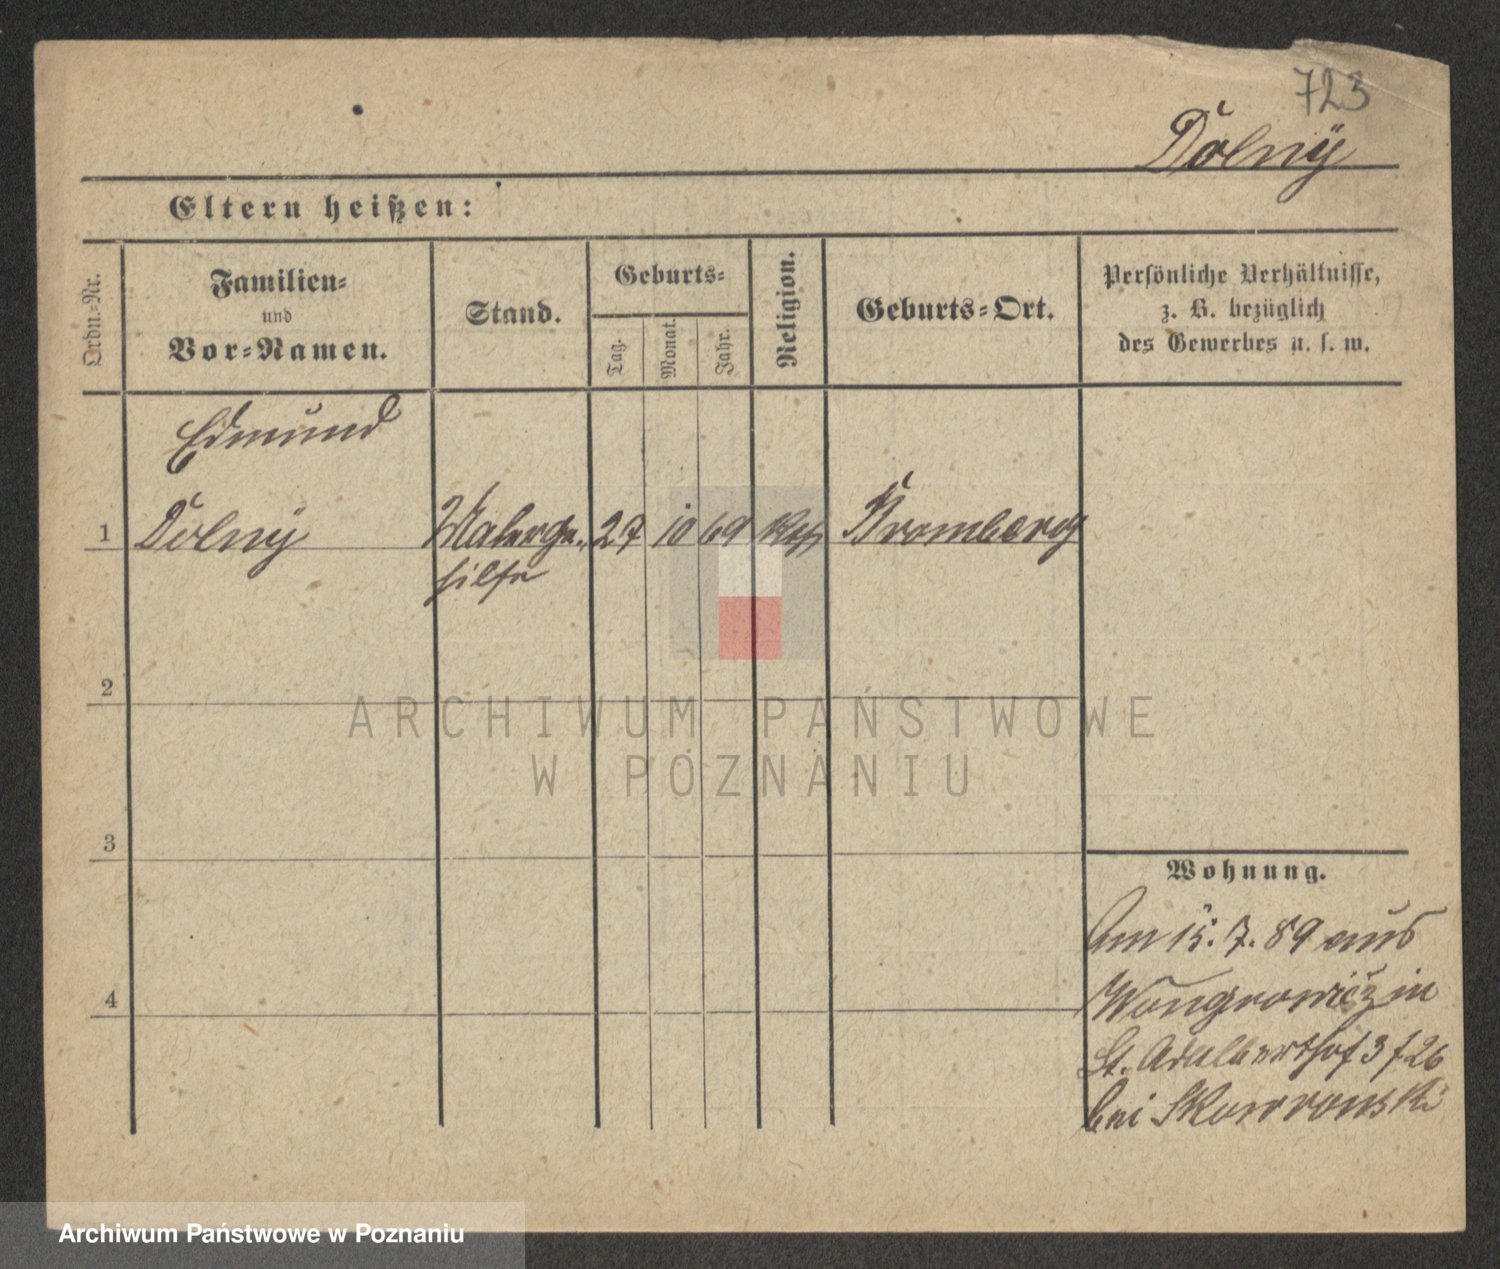 723
Dolny
Eltern heißen:
Ordn.-Nr.
Familien-
und
Vor-Namen.
Stand.
Geburts-
Tag.
Monat.
Jahr.
Religion.
Geburts-Ort.
Persönliche Verhältnisse,
z. B. bezüglich
des Gewerbes u. s. w.
Edmund
1 Dolny Malerge- 27 10 69 kth Bromberg
hilfe
2
3
4
Wohnung.
Am 15. 7. 89 aus
Wongrowicz in
St. Adalberthof 3 / 26
bei Skowronski
ARCHIWUM PAŃSTWOWE
W POZNANIU
Archiwum Państwowe w Poznaniu